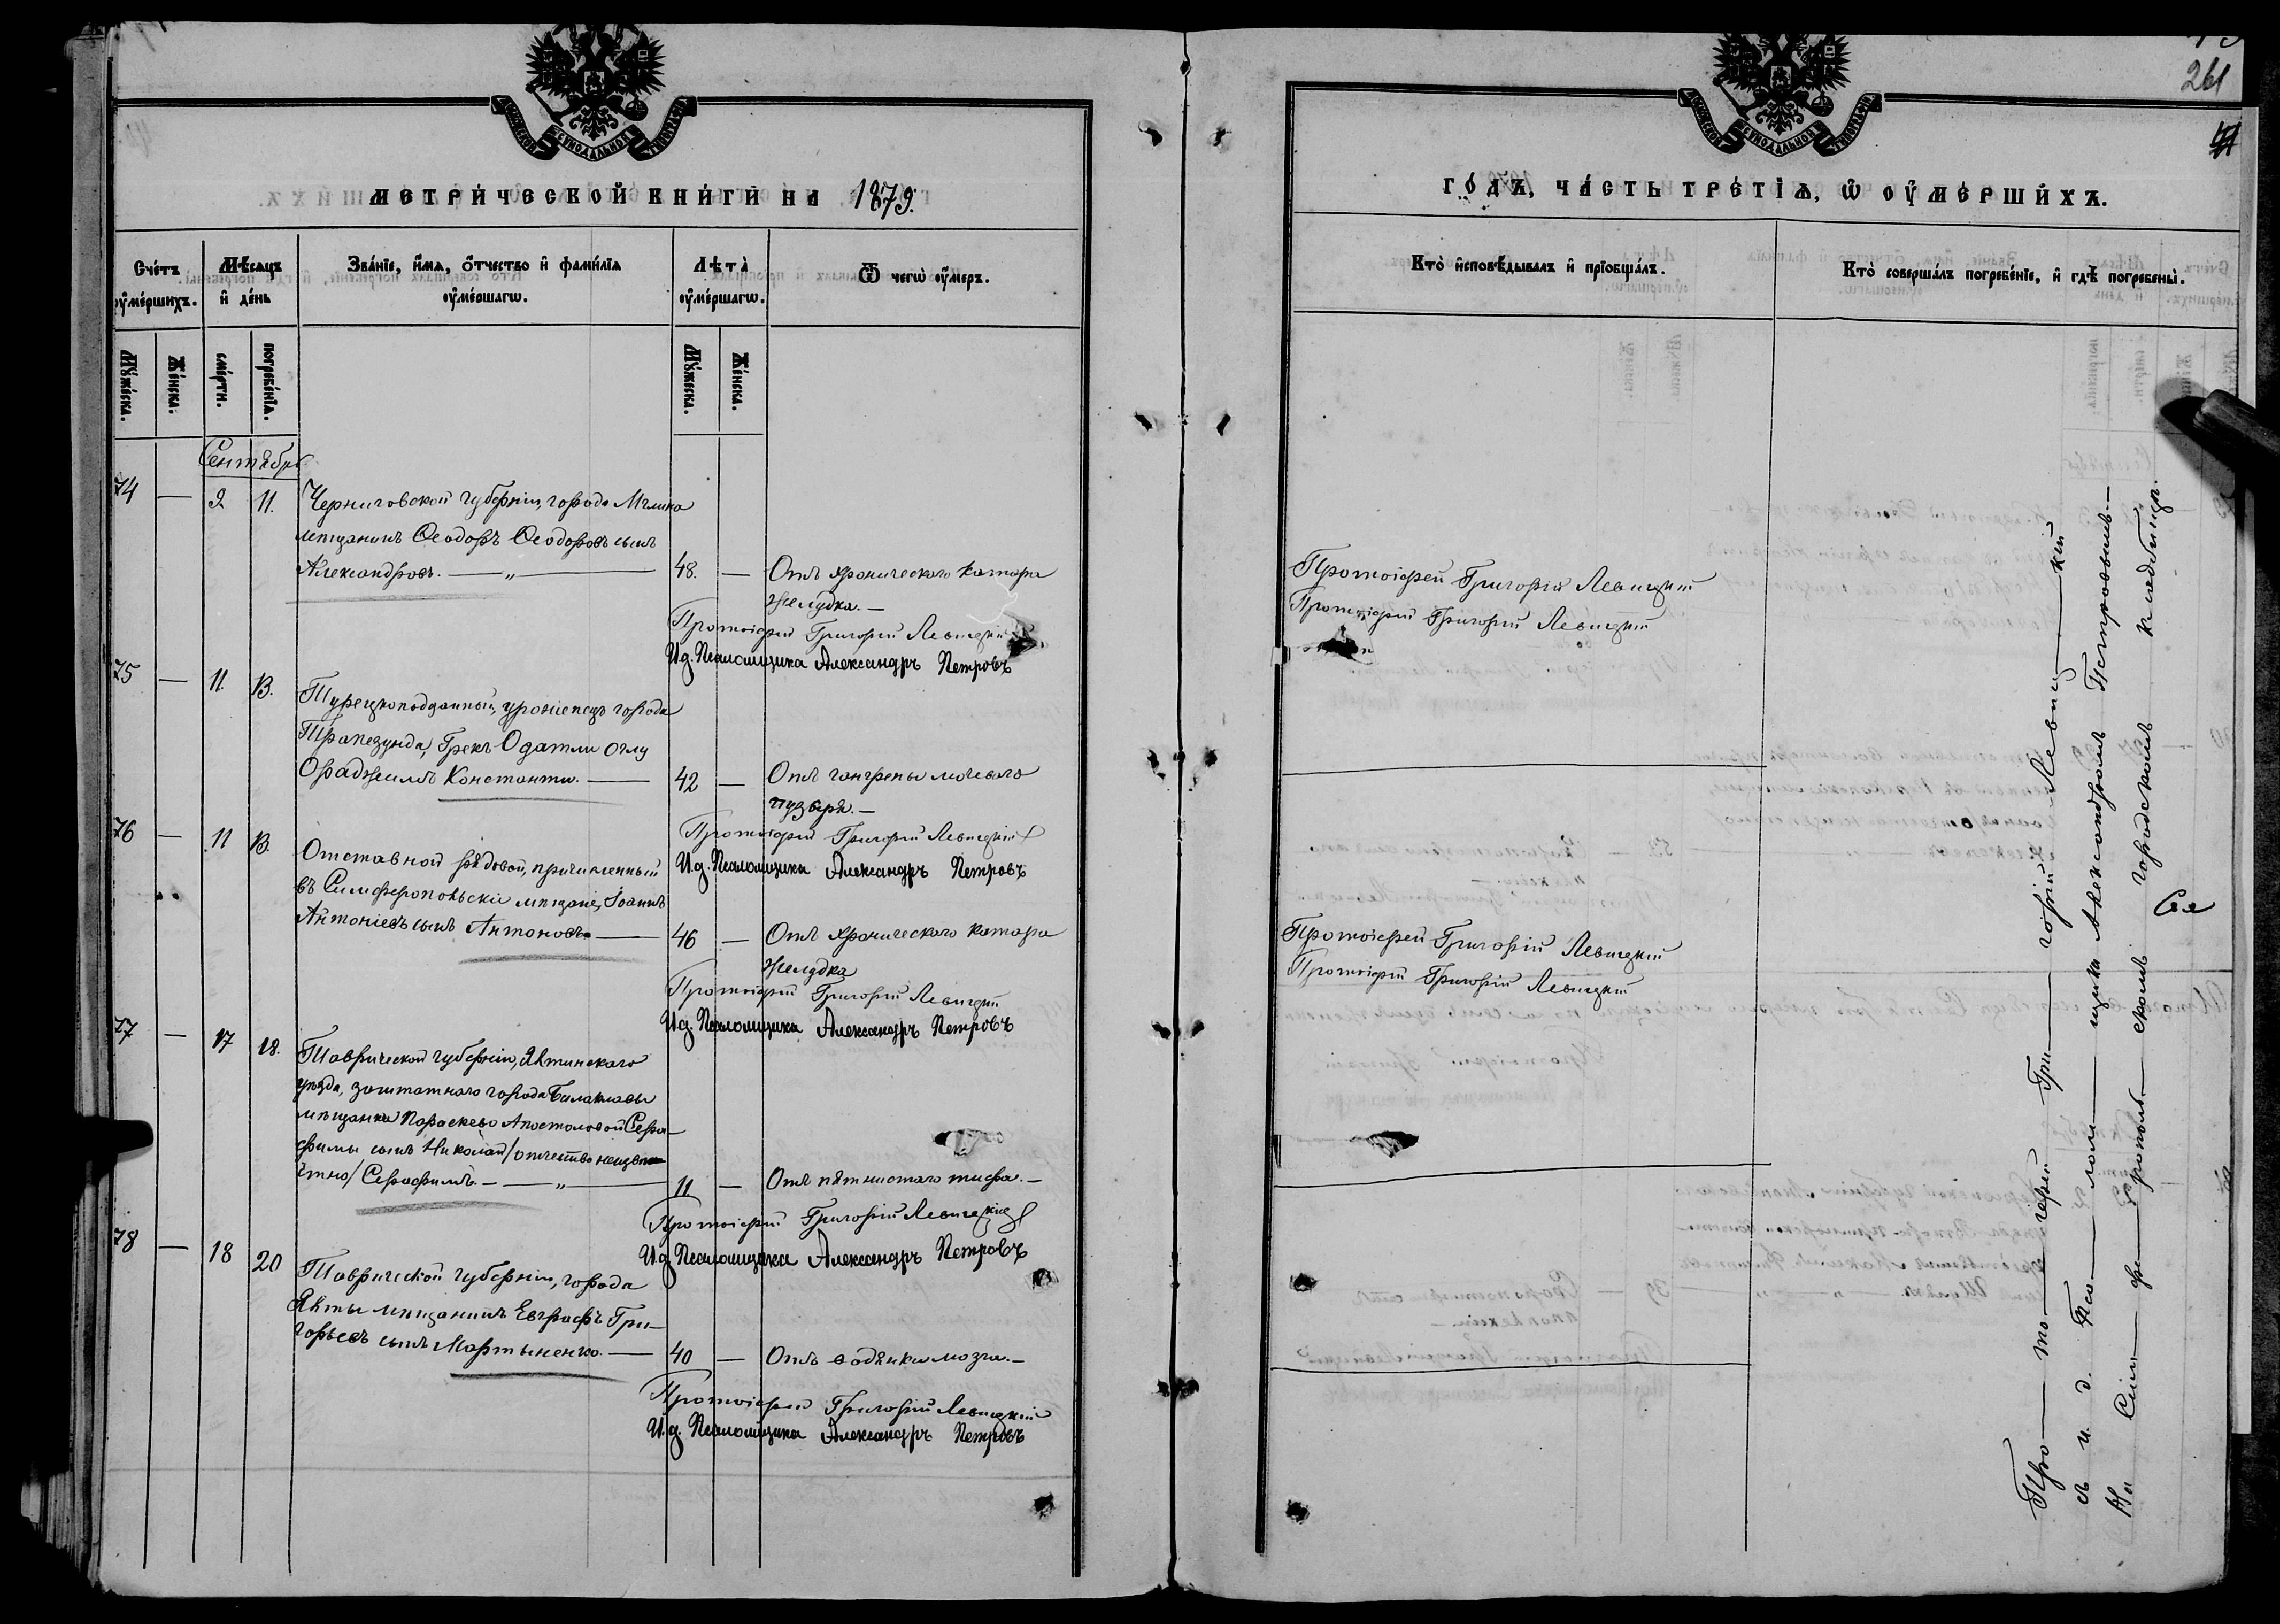 МОСКОВСКОЙ СѴНОДАЛЬНОЙ ТИПОГРАФІИ
МЕТРИ́ЧЕСКОЙ КНИ́ГИ НА 1879.
Сче́тъ ᲂу҆ме́ршихъ.
Мѣ́сяцъ и҆ де́нь
Зва́нїе, и҆́мѧ, ѻ҆́тчество и҆ фами́лїѧ ᲂу҆ме́ршагѡ.
Лѣта̀ ᲂу҆ме́ршагѡ.
Ѿ чегѡ̀ ᲂу҆́меръ.
Мꙋ́жеска.
Же́нска.
сме́рти.
погребе́нїѧ.
Мꙋ́жеска.
Же́нска.
Сентябрь
74 — 9 11. Черниговской губерніи, города Мглина
мѣщанинъ Ѳеодоръ Ѳеодоровъ сынъ
Александровъ. — „ — 48. — Отъ хроническаго катара
желудка. —
Протоіерей Григорій Левицкій
И.д. Псаломщика Александръ Петровъ
75 — 11 13. Турецкоподданный, уроженецъ города
Трапезунда, Грекъ Одатли Оглу
Ораджилъ Константи. — 42 — Отъ гангрены мочеваго
пузыря. —
Протоіерей Григорій Левицкій
И.д. Псаломщика Александръ Петровъ
76 — 11 13. Отставной рядовой, причисленный
въ Симферопольскіе мѣщане, Іоаннъ
Антоніевъ сынъ Антоновъ. — 46 — Отъ хроническаго катара
желудка
Протоіерей Григорій Левицкій
И.д. Псаломщика Александръ Петровъ
77 — 17 18. Таврической губерніи, Ялтинскаго
уѣзда, заштатнаго города Балаклавы
мѣщанки Параскевы Апостоловой Сера-
фимы сынъ Николай /отчество неизвѣ-
стно/ Серафимъ. — „ — 11 — Отъ пятнистаго тифа. —
Протоіерей Григорій Левицкій
И.д. Псаломщика Александръ Петровъ
78 — 18 20 Таврической губерніи, города
Ялты мѣщанинъ Евграфъ Гри-
горьевъ сынъ Мартыненко. — 40 — Отъ водянки мозга. —
Протоіерей Григорій Левицкій
И.д. Псаломщика Александръ Петровъ
261
МОСКОВСКОЙ СѴНОДАЛЬНОЙ ТИПОГРАФІИ
ГО́ДЪ, ЧА́СТЬ ТРЕ́ТЇѦ, Ѡ҆ ОУ҆МЕ́РШИХЪ.
Кто̀ и҆сповѣ́дывалъ и҆ прїѡбща́лъ.
Кто̀ соверша́лъ погребе́нїе, и҆ гдѣ̀ погребены̀.
Протоіерей Григорій Левицкій
Протоіерей Григорій Левицкій
Протоіерей Григорій Левицкій
Протоіерей Григорій Левицкій
Про — то — іерей Гри — горій Левиц — кій
съ и. д. Пса — лом — щика Александромъ Петровымъ —
На Сим — фе — рополь — скомъ городскомъ кладбищѣ.